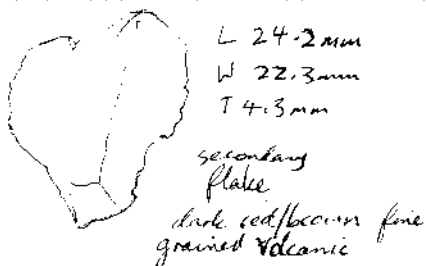 L 24.2mm
W 22.3mm
T 4.3mm
secondary
flake
dark red/brown fine
grained volcanic